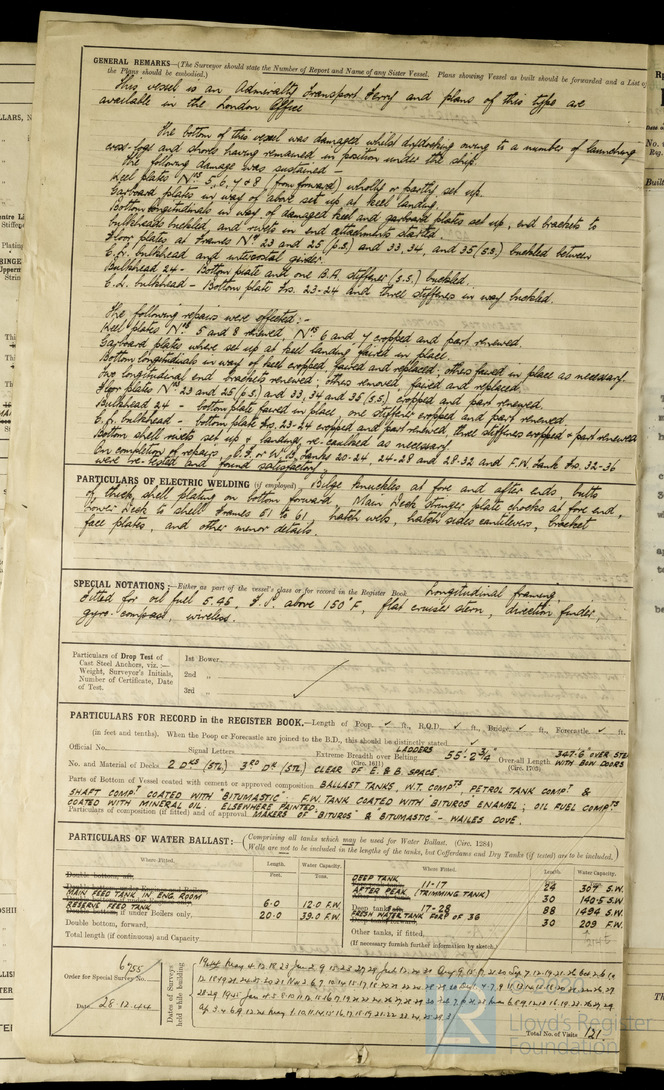 GENERAL REMARKS—(The Surveyor should state the Number of Report and Name of any Sister Vessel. Plans showing Vessel as built should be forwarded and a List of
the Plans should be embodied.)
This vessel is an Admiralty Transport Ferry and plans of this type are
available in the London Office
The bottom of this vessel was damaged whilst drydocking owing to a number of launching
cross-logs and shores having remained in position under the ship.
The following damage was sustained –
Keel plates Nos 5, 6, 7 & 8 (from forward) wholly or partly set up.
Garboard plates in way of above set up at keel landing.
Bottom longitudinals in way of damaged keel and garboard plates set up, end brackets to
bulkheads buckled, and rivets in end attachments started.
Floor plates at Frames Nos 23 and 25 (P.S.) and 33, 34, and 35 (S.S.) buckled between
C.L. bulkhead and intercostal girder.
Bulkhead 24 - Bottom plate and one B.A. stiffener (S.S.) buckled.
C.L. bulkhead – Bottom plate Frs. 23-24 and three stiffeners in way buckled.
The following repairs were effected:-
Keel plates Nos 5 and 8 renewed Nos 6 and 7 cropped and part renewed.
Garboard plates where set up at keel landing faired in place.
Bottom longitudinals in way of keel cropped, faired and replaced; others faired in place as necessary.
Two longitudinal end brackets renewed, others removed, faired and replaced.
Floor plates Nos 23 and 25 (P.S.) and 33, 34 and 35 (S.S.) cropped and part renewed.
Bulkhead 24 – bottom plate faired in place, one stiffener cropped and part renewed.
C.L. bulkhead – bottom plate Frs. 23-24 cropped and part renewed, three stiffeners cropped & part renewed
Bottom shell rivets set up & landings re-caulked as necessary.
On completion of repairs, O.F. or W.B. Tanks 20-24, 24-28 and 28-32 and F.W. Tank Frs 32-36
were re-tested and found satisfactory.
PARTICULARS OF ELECTRIC WELDING (if employed) Bilge knuckles at fore and after ends, butts
of thick shell plating on bottom forward Main Deck Stringer plate chocks at fore end,
Lower Deck to shell Frames 51 to 61 hatch webs, hatch sides cantilevers, bracket
face plates, and other minor details.
SPECIAL NOTATIONS:—Either as part of the vessel's class or for record in the Register Book Longitudinal framing,
Fitted for oil fuel 5.45, F.P. above 150°F, flat cruiser stern, direction finder,
gyro-compass, wireless.
Particulars of Drop Test of
Cast Steel Anchors, viz.:—
Weight, Surveyor's Initials,
Number of Certificate, Date
of Test.
1st Bower
2nd „
3rd „
PARTICULARS FOR RECORD in the REGISTER BOOK.—Length of Poop ✓ ft., R.Q.D. ✓ ft., Bridge ✓ ft., Forecastle ✓ ft.
(in feet and tenths). When the Poop or Forecastle are joined to the B.D., this should be distinctly stated
Official No. Signal Letters Extreme Breadth over Belting LADDERS 55' 2¾" Over-all Length 347.6 OVER STEM
(Circ. 1611) (Circ. 1703) WITH BOW DOORS
No. and Material of Decks 2 Dks (STL) 3RD Dk (STL) CLEAR OF E. & B. SPACE
Parts of Bottom of Vessel coated with cement or approved composition BALLAST TANKS, W.T. COMPTS, PETROL TANK COMPT &
SHAFT COMPT COATED WITH "BITUMASTIC". F.W. TANK COATED WITH BITUROS ENAMEL; OIL FUEL COMPTS
COATED WITH MINERAL OIL. ELSEWHERE PAINTED.
Particulars of composition (if fitted) and of approval MAKERS OF "BITUROS" & BITUMASTIC – WAILES DOVE.
PARTICULARS OF WATER BALLAST:—(Comprising all tanks which may be used for Water Ballast. (Circ. 1284)
(Wells are not to be included in the lengths of the tanks, but Cofferdams and Dry Tanks (if tested) are to be included.)
Where Fitted. Length. Water Capacity. Where Fitted. Length. Water Capacity.
Feet. Tons.
Double bottom, aft,
DEEP TANK 11-17 24 307 S.W.
MAIN FEED TANK IN ENG. ROOM 6.0 12.0 F.W.
AFTER PEAK (TRIMMING TANK) 30 140.5 S.W.
RESERVE FEED TANK 20.0 39.0 F.W.
Deep tank 17-28 88 1494 S.W.
if under Boilers only,
FRESH WATER TANK FORD OF 36 30 209 F.W.
Double bottom, forward,
Other tanks, if fitted,
Total length (if continuous) and Capacity
(If necessary furnish further information by sketch.)
Order for Special Survey No. 6755
Date 28.12.44
Dates of Surveys
held while building
Total No. of Visits 121
Lloyd's Register
Foundation